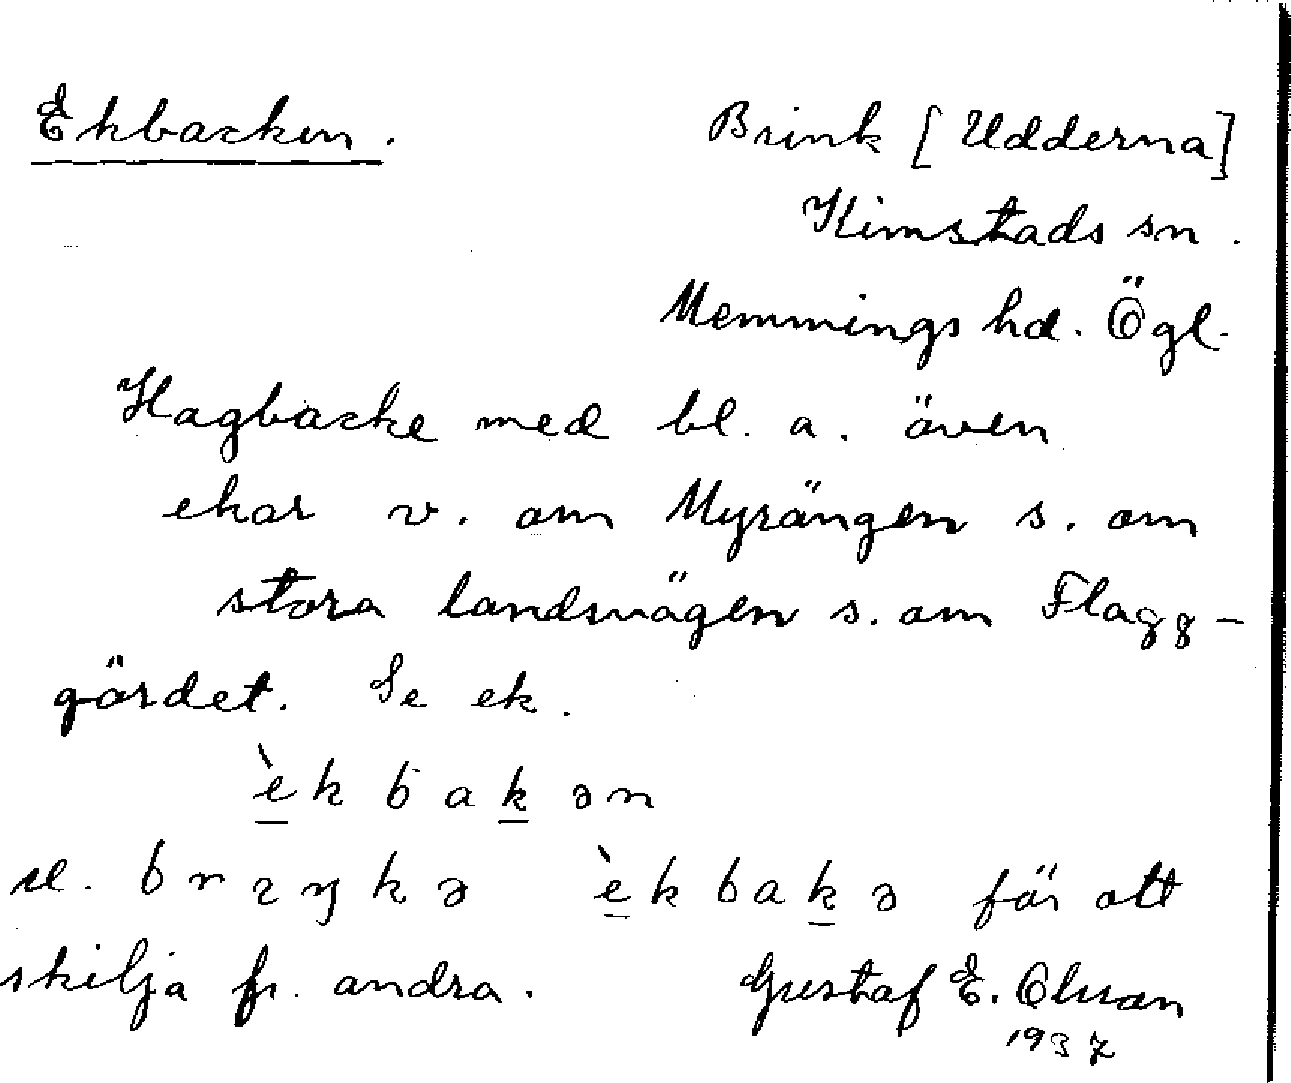 Ekbacken. Brink [Udderna]
Kimstads sn.
Memmings hd. Ögl.
Hagbacke med bl. a. även
ekar v. om Myrängen s. om
stora landsvägen s. om Flagg-
gärdet. Se ek.
èkbakən
el. brɪŋkə èkbakə för att
skilja fr. andra. Gustaf E. Olsson
1937